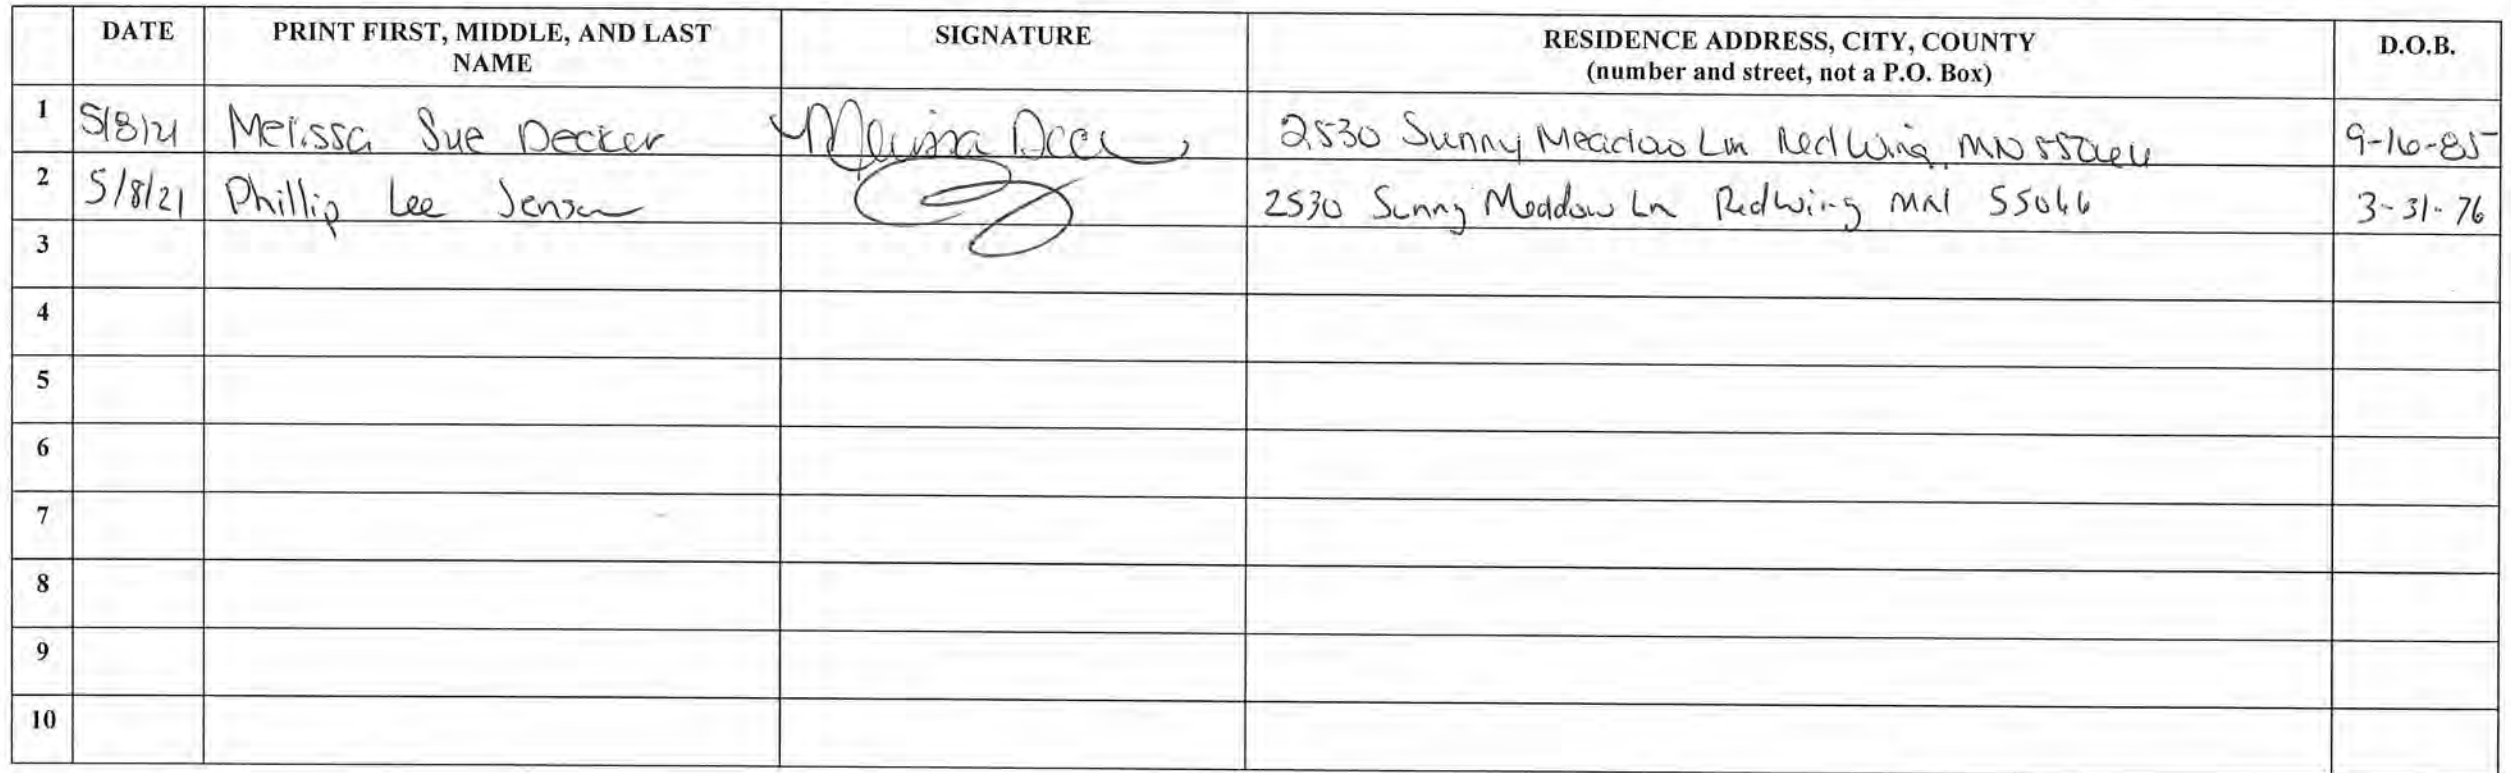 DATE PRINT FIRST, MIDDLE, AND LAST NAME SIGNATURE RESIDENCE ADDRESS, CITY, COUNTY (number and street, not a P.O. Box) D.O.B.
1 5/8/21 Melissa Sue Decker Melissa 2530 Sunny Meadow Ln Red Wing, MN 55066 9-16-85
2 5/8/21 Phillip Lee Jensen 2530 Sunny Meddow Ln Redwing MN 55066 3-31-76
3
4
5
6
7
8
9
10